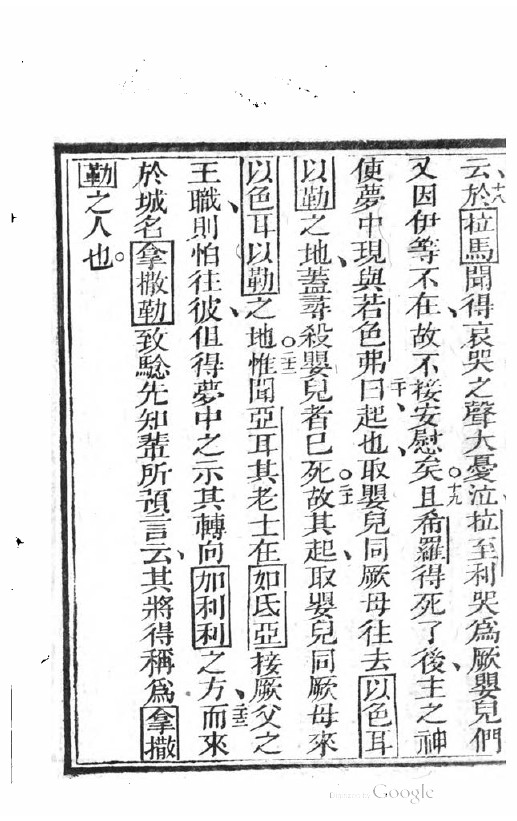 云、十八於拉馬聞得哀哭之聲、大憂泣、拉至利哭為厥嬰兒們
又因伊等不在、故不接安慰矣。十九且希羅得死了後、主之神
使夢中現與若色弗曰、二十起也、取嬰兒同厥母往去以色耳
以勒之地、蓋尋殺嬰兒者已死。二十一故其起、取嬰兒同厥母來
以色耳以勒之地。二十二惟聞亞耳其老士在如氏亞接厥父之
王職、則怕往彼、但得夢中之示、其轉向加利利之方、二十三而來
於城名拿撒勒、致騐先知輩所預言云、其將得稱為拿撒
勒之人也。
Digitized by Google